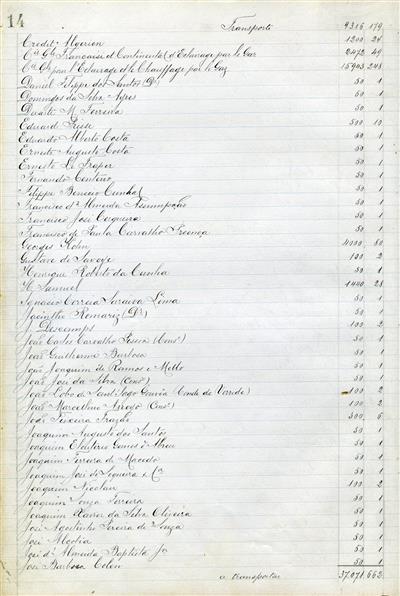 14
Transporte 9316 179
Credit Algerien 1200 24
Cie Gle Française et Continentale d'Eclairage par le Gaz 2472 49
Cie Gle pour l'Eclairage et le Chauffage par le Gaz 15903 248
Daniel Filippe dos Santos (Dr) 50 1
Domingos da Silva Ayres 50 1
Duarte M. Ferreira 50 1
Eduard Fiese 500 10
Eduardo Alberto Costa 50 1
Ernesto Augusto Costa 50 1
Ernesto 50 1
Fernando Centeno 50 1
Filippe Benicio Cunha 50 1
Francisco d'Almeida Assumpção 50 1
Francisco José Cerqueira 50 1
Francisco de Paula Carvalho Proença 50 1
Georges Kohn 4000 80
Gustave de Savoye 100 2
Henrique Roberto da Cunha 50 1
H. Samuel 1400 28
Ignacio Correia Saraiva Lima 50 1
Jacintho Romariz (Dr) 50 1
J. Descamps 100 2
João Carlos Carvalho Pessoa (Cons) 50 1
João Guilherme Barbosa 50 1
João Joaquim de Ramos e Mello 50 1
João José da Silva (Cons) 50 1
João Lobo de Sant'Iago Gouvêa (Conde de Verride) 100 2
João Marcelino Arroyo (Cons) 100 2
João Teixeira Frazão 300 6
Joaquim Augusto dos Santos 50 1
Joaquim Eleuterio Gomes d'Abreu 50 1
Joaquim Ferreira de Macedo 50 1
Joaquim José de Sequeira & Ca 50 1
Joaquim Nicolau 100 2
Joaquim Souza Ferreira 50 1
Joaquim Xavier da Silva Oliveira 50 1
José Agostinho Pereira de Souza 50 1
José 50 1
José d'Almeida Baptista Jr 50 1
José Barbosa Colen 50 1
a transportar 37,071 662